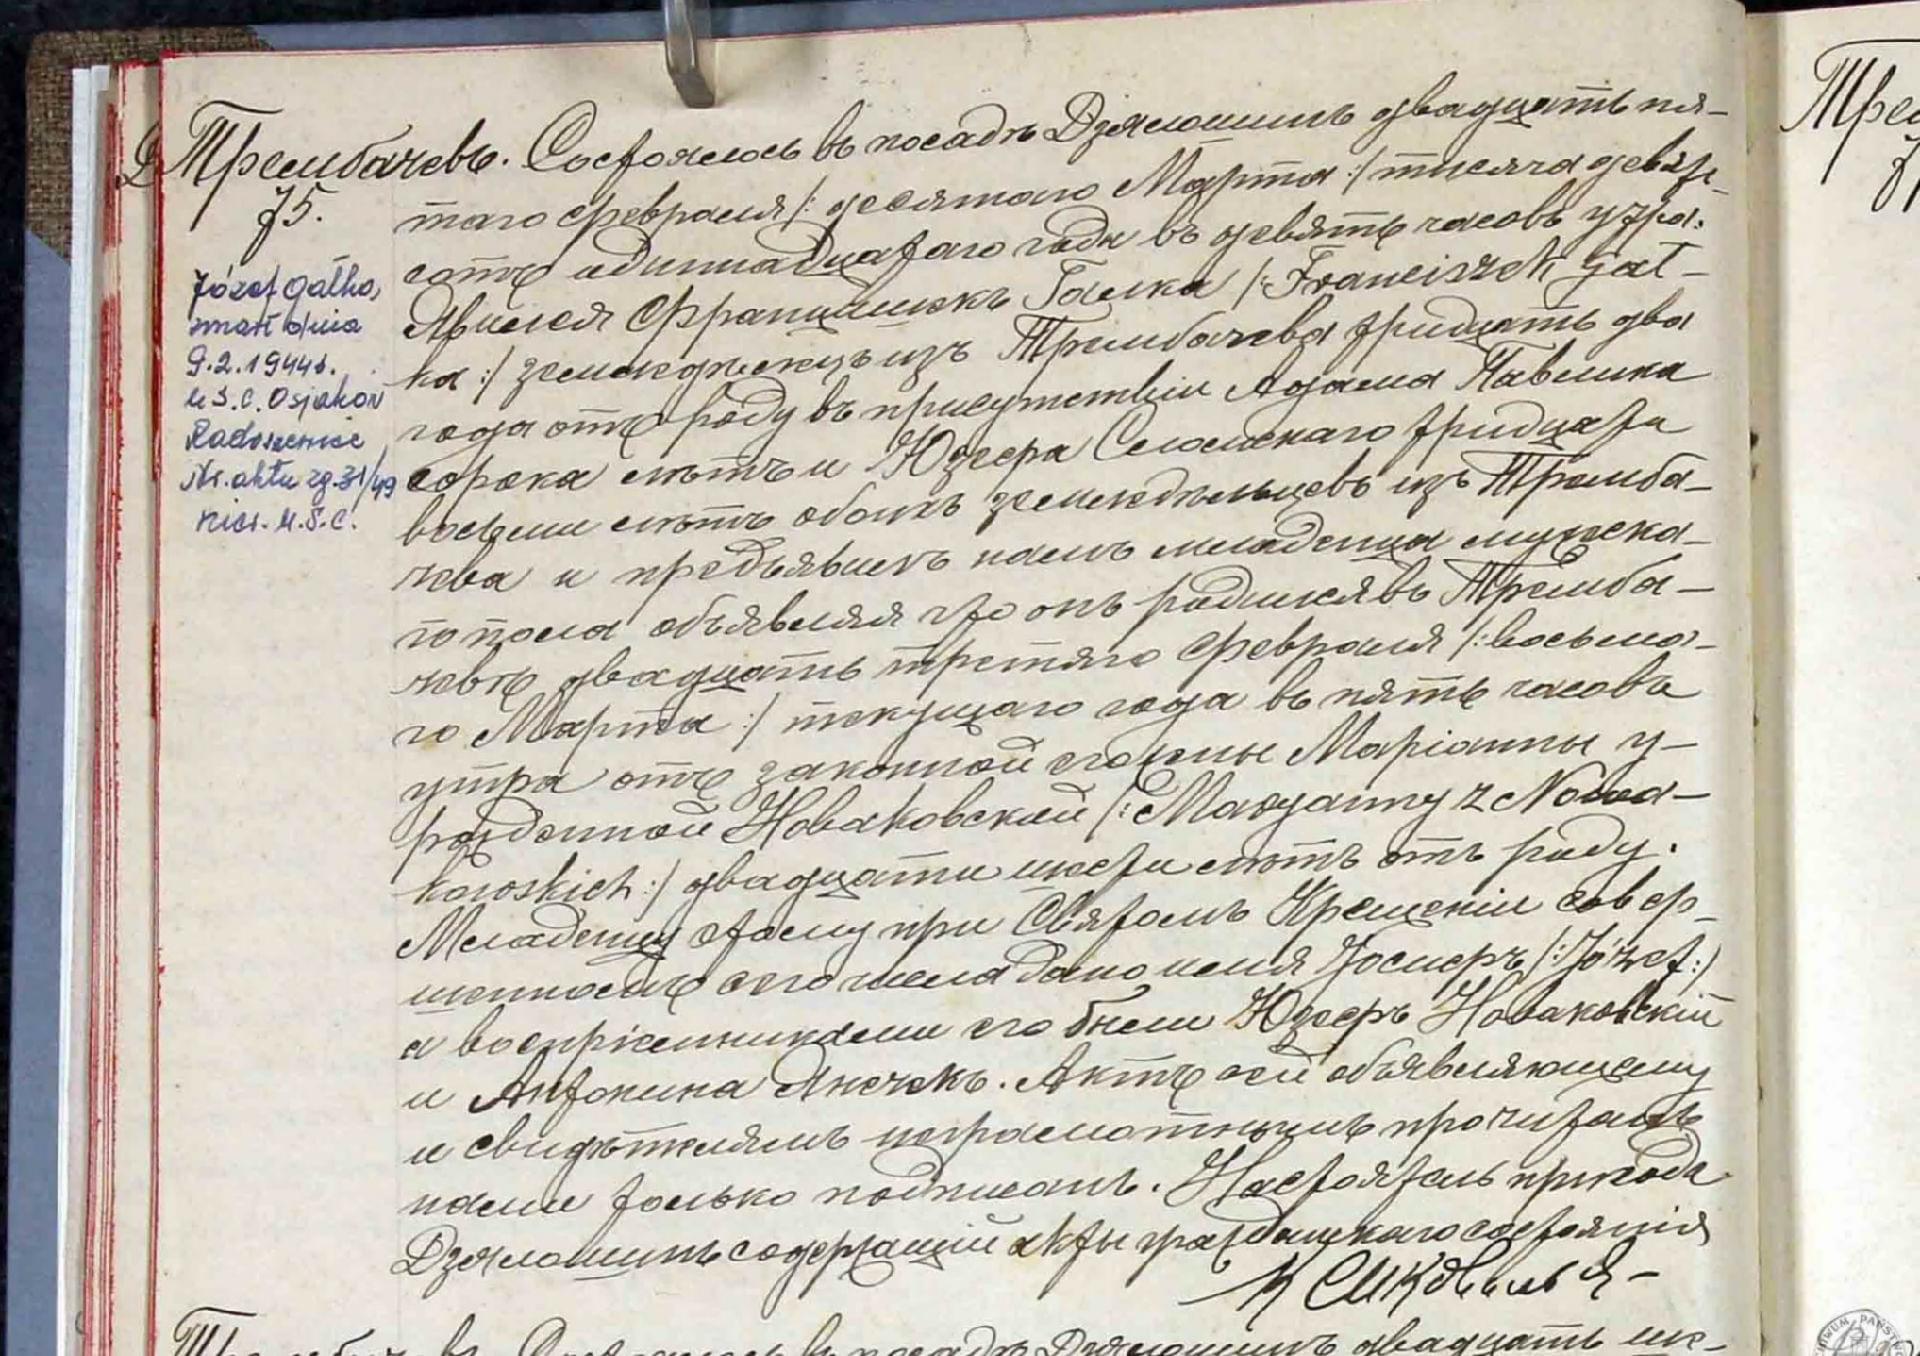 Трембачевъ. Состоялось въ посадѣ Дзялошинѣ двадцать пя-
75.
таго февраля /: десятаго Марта :/ тысяча девять-
сотъ одиннадцатаго года въ девять часовъ утра.
Явился Францишекъ Галка /: Franciszek Gał-
ka :/ земледѣлецъ изъ Трембачева тридцать два
года отъ роду въ присутствіи Адама Павлика
сорока лѣтъ и Юзефа тридцати
восьми лѣтъ обоихъ земледѣльцевъ изъ Тремба-
чева и предъявилъ намъ младенца мужска-
го пола объявляя что онъ родился въ Тремба-
чевѣ двадцать третяго февраля /: восьма-
го Марта :/ текущаго года въ пять часовъ
утра отъ законной его жены Маріанны у-
рожденной Новаковской /: Maryanny z Nowa-
kowskich :/ двадцати шести лѣтъ отъ роду.
Младенцу этому при Святомъ Крещеніи совер-
шенномъ сего числа дано имя Іосифъ /: Józef :/
а воспріемниками его были Юзефъ Новаковскій
и Антонина . Актъ сей объявляющему
и свидѣтелямъ неграмотнымъ прочитанъ
нами только подписанъ. Настоятель прихода
Дзялошинъ содержащій акты гражданскаго состоянія
Józef Gałka,
zmarł dnia
9.2.1944r.
U.S.C. Osjaków
Radoszewice
Nr. aktu zg. 31/49
Kier. U.S.C.
Тре
7